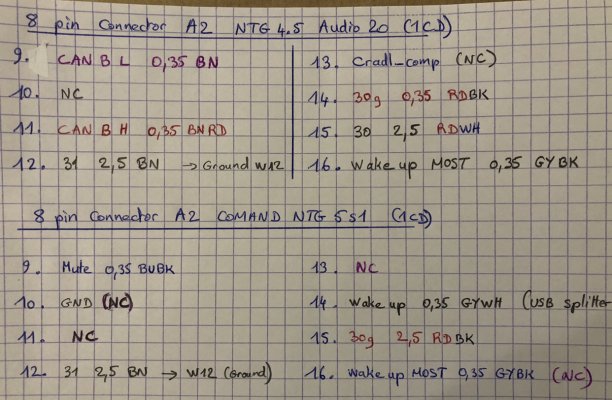 8 pin Connector A2 NTG 4.5 Audio 20 (1CD)
9. CAN B L 0,35 BN
10. NC
11. CAN B H 0,35 BNRD
12. 31 2,5 BN → Ground W12
13. Cradl-comp (NC)
14. 30g 0,35 RDBK
15. 30 2,5 RDWH
16. Wake up MOST 0,35 GYBK
8 pin Connector A2 COMAND NTG 5s1 (1CD)
9. Mute 0,35 BUBK
10. GND (NC)
11. NC
12. 31 2,5 BN → W12 (Ground)
13. NC
14. Wake up 0,35 GYWH (USB splitter
15. 30g 2,5 RDBK
16. Wake up MOST 0,35 GYBK (NC)